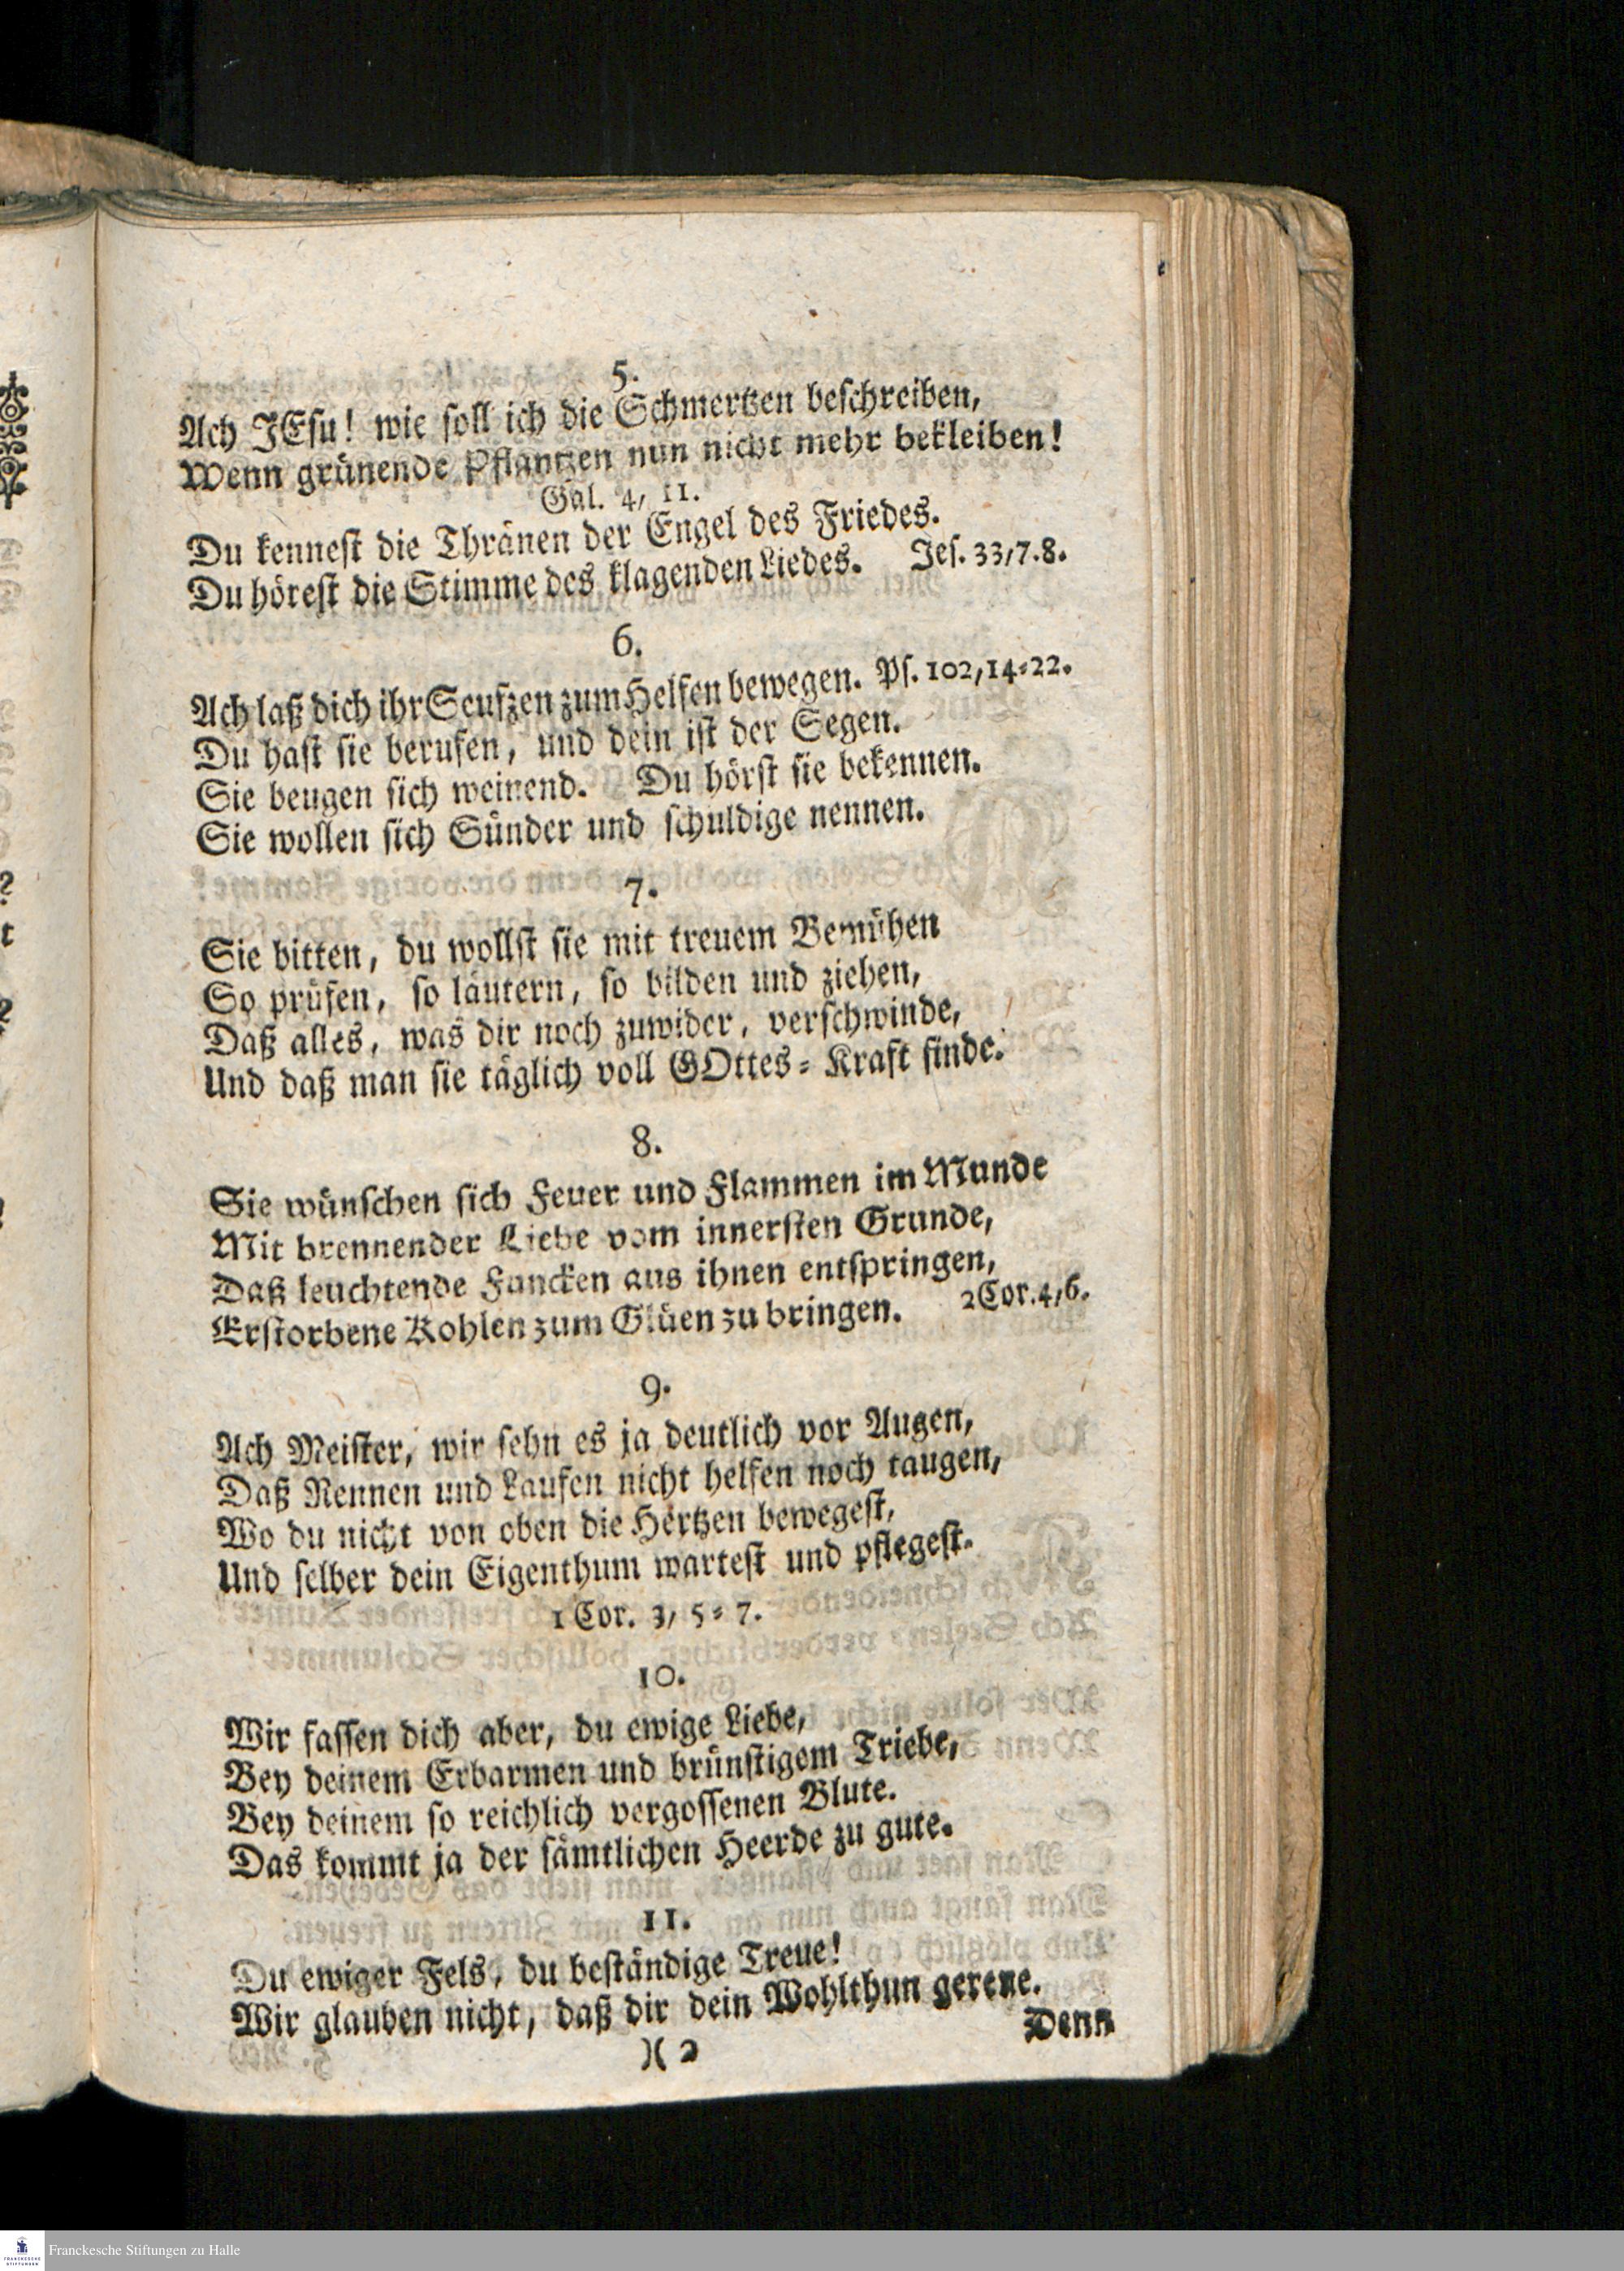 5.
Ach JEsu! wie soll ich die Schmertzen beschreiben,
Wenn grünende Pflantzen nun nicht mehr bekleiben!
Gal. 4, 11.
Du kennest die Thränen der Engel des Friedes.
Du hörest die Stimme des klagenden Liedes. Jes. 33, 7. 8.
6.
Ach laß dich ihr Seufzen zum Helfen bewegen. Ps. 102, 14=22.
Du hast sie berufen, und dein ist der Segen.
Sie beugen sich weinend. Du hörst sie bekennen.
Sie wollen sich Sünder und schuldige nennen.
7.
Sie bitten, du wollst sie mit treuem Bemühen
So prüfen, so läutern, so bilden und ziehen,
Daß alles, was dir noch zuwider, verschwinde,
Und daß man sie täglich voll GOttes=Kraft finde.
8.
Sie wünschen sich Feuer und Flammen im Munde
Mit brennender Liebe vom innersten Grunde,
Daß leuchtende Funcken aus ihnen entspringen,
Erstorbene Kohlen zum Glüen zu bringen. 2 Cor. 4, 6.
9.
Ach Meister, wir sehn es ja deutlich vor Augen,
Daß Rennen und Laufen nicht helfen noch taugen,
Wo du nicht von oben die Hertzen bewegest,
Und selber dein Eigenthum wartest und pflegest.
1 Cor. 3, 5=7.
10.
Wir fassen dich aber, du ewige Liebe,
Bey deinem Erbarmen und brünstigem Triebe,
Bey deinem so reichlich vergossenen Blute.
Das kommt ja der sämtlichen Heerde zu gute.
11.
Du ewiger Fels, du beständige Treue!
Wir glauben nicht, daß dir dein Wohlthun gereue.
)( 2 Denn
Franckesche Stiftungen zu Halle